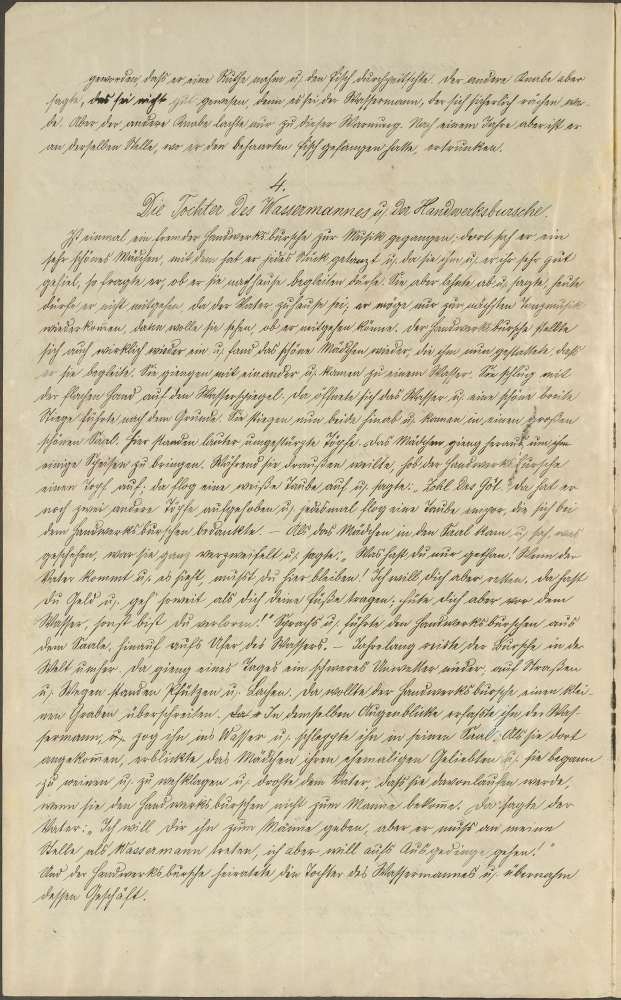 geworden, daß er eine Ruthe nahm u. den Fisch durchpeitschte. Der andere Knabe aber
sagte, das sei nicht gut gewesen, denn es sei der Wassermann, der sich sicherlich rächen wer-
de. Aber der andere Knabe lachte nur zu dieser Warnung. Nach einem Jahre aber ist er
an derselben Stelle, wo er den behaarten Fisch gefangen hatte, ertrunken.
4.
Die Tochter des Wassermannes u. der Handwerksbursche.
Ist einmal ein fremder Handwerksbursche zur Musik gegangen, dort sah er ein
sehr schönes Mädchen, mit dem hat er jedes Stück getanzt u. da sie ihm u. er ihr sehr gut
gefiel, so fragte er, ob er sie nachhause begleiten dürfe. Sie aber lehnte ab u. sagte, heute
dürfe er nicht mitgehen, da der Vater zuhause sei; er möge nur zur nächsten Tanzmusik
wiederkomen, dann wolle sie sehen, ob er mitgehen könne. Der Handwerksbursche stellte
sich auch wirklich wieder ein u. fand das schöne Mädchen wieder, die ihm nun gestattete, daß
er sie begleite. Sie giengen mit einander u. kamen zu einem Wasser. Sie schlug mit
der flachen Hand auf den Wasserspiegel. Da öffnete sich das Wasser u. eine schöne breite
Stiege führte nach dem Grunde. Sie stiegen nun beide hinab u. kamen in einen großen
schönen Saal. Hier standen lauter umgestürzte Töpfe. Das Mädchen gieng heraus, um ihm
einige Speisen zu bringen. Während sie draußen weilte, hob der Handwerksbursche
einen Topf auf; da flog eine weiße Taube auf u. sagte: „Zohl des Got." Da hat er
noch zwei andere Töpfe aufgehoben u. jedesmal flog eine Taube empor, die sich bei
dem Handwerksburschen bedankte. – Als das Mädchen in den Saal kam u. sah was
geschehen, war sie ganz verzweifelt u. sagte: „Was hast du nur gethan! Wenn der
Vater kommt u. es sieht, mußt du hier bleiben! Ich will dich aber retten. Da hast
du Geld u. geh' soweit als dich deine Füße tragen, hüte dich aber vor dem
Wasser, sonst bist du verloren!" Sprachs u. führte den Handwerksburschen aus
dem Saale, hinauf aufs Ufer des Wassers. – Jahrelang reiste der Bursche in der
Welt umher. Da gieng eines Tages ein schweres Unwetter nieder, auf Straßen
u. Wegen standen Pfützen u. Lachen. Da wollte der Handwerksbursche einen klei-
nen Graben überschreiten. In demselben Augenblicke erfasste ihn der Was-
sermann, u. zog ihn ins Wasser u. schleppte ihn in seinen Saal. Als sie dort
angekomen, erblickte das Mädchen ihren ehemaligen Geliebten u. sie begann
zu weinen u. zu wehklagen u. drohte dem Vater, daß sie davonlaufen werde,
wenn sie den Handwerksburschen nicht zum Manne bekome. Da sagte der
Vater: „Ich will dir ihn zum Manne geben, aber er muß an meine
Stelle als Wassermann treten, ich aber will aufs Ausgedinge gehen!"
Und der Handwerksbursche heiratete den Tochter des Wassermannes u. übernahm
dessen Geschäft.